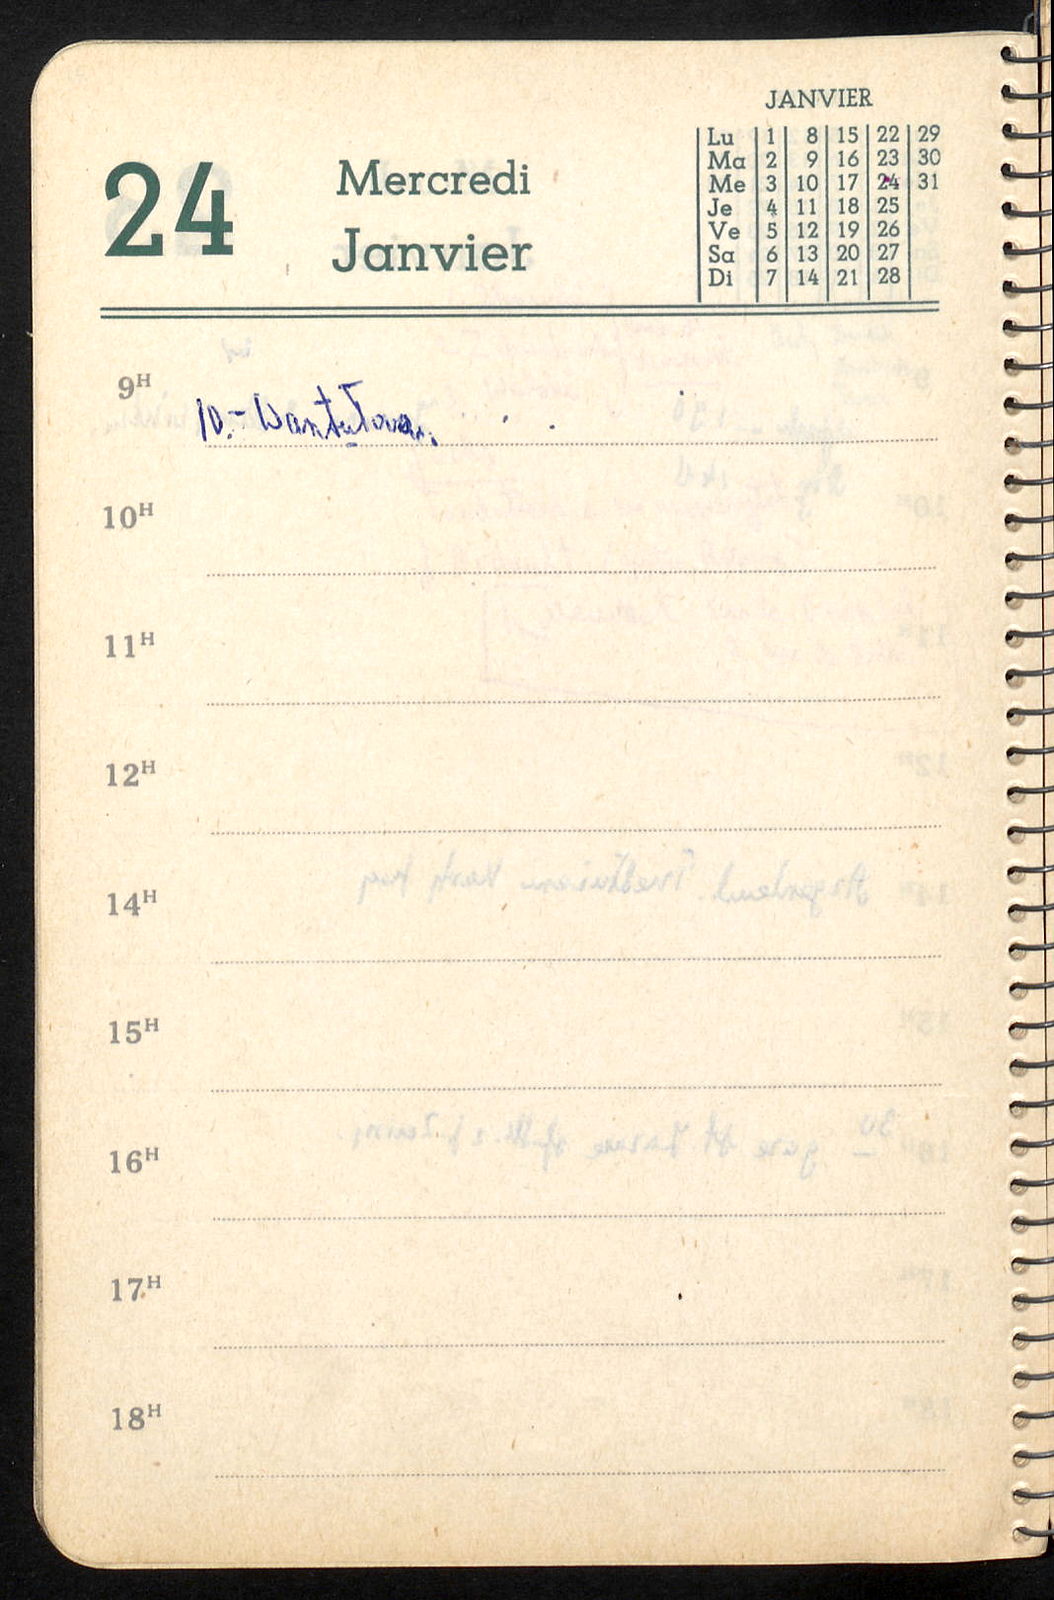 JANVIER
24 Mercredi
Janvier
Lu 1 8 15 22 29
Ma 2 9 16 23 30
Me 3 10 17 24 31
Je 4 11 18 25
Ve 5 12 19 26
Sa 6 13 20 27
Di 7 14 21 28
9H
10.-
10H
11H
12H
14H
15H
16H
17H
18H